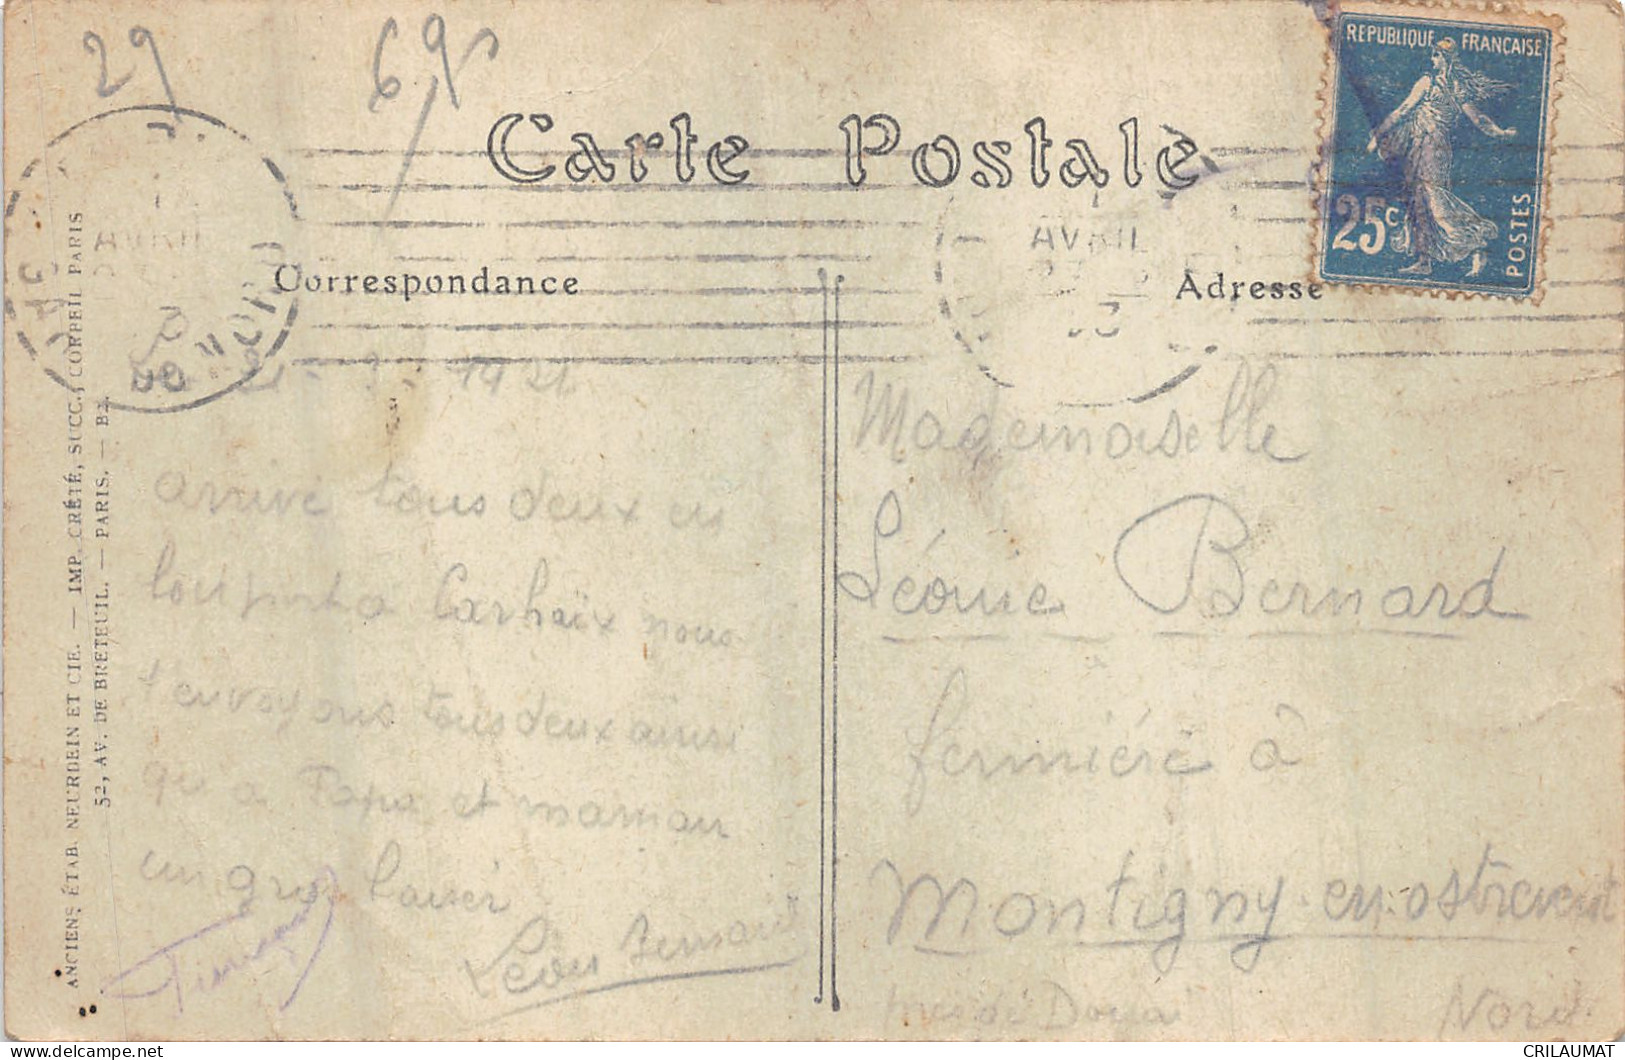 29
Carte Postale
REPUBLIQUE FRANÇAISE
25c
POSTES
AVRIL
AVRIL
Correspondance
Adresse
arrivé tous deux en
à Carhaix nous
t'envoyons tous deux ainsi
qu'a Papa et maman
un gros baiser
Léon Bernard
Mademoiselle
Léonie Bernard
fermière à
Montigny-en-ostrevent
près de Douai Nord
ANCIENS ÉTAB. NEURDEIN ET CIE. — IMP. CRÉTÉ, SUCC., CORBEIL PARIS
52, AV. DE BRETEUIL. — PARIS. — B2.
delcampe.net
CRILAUMAT